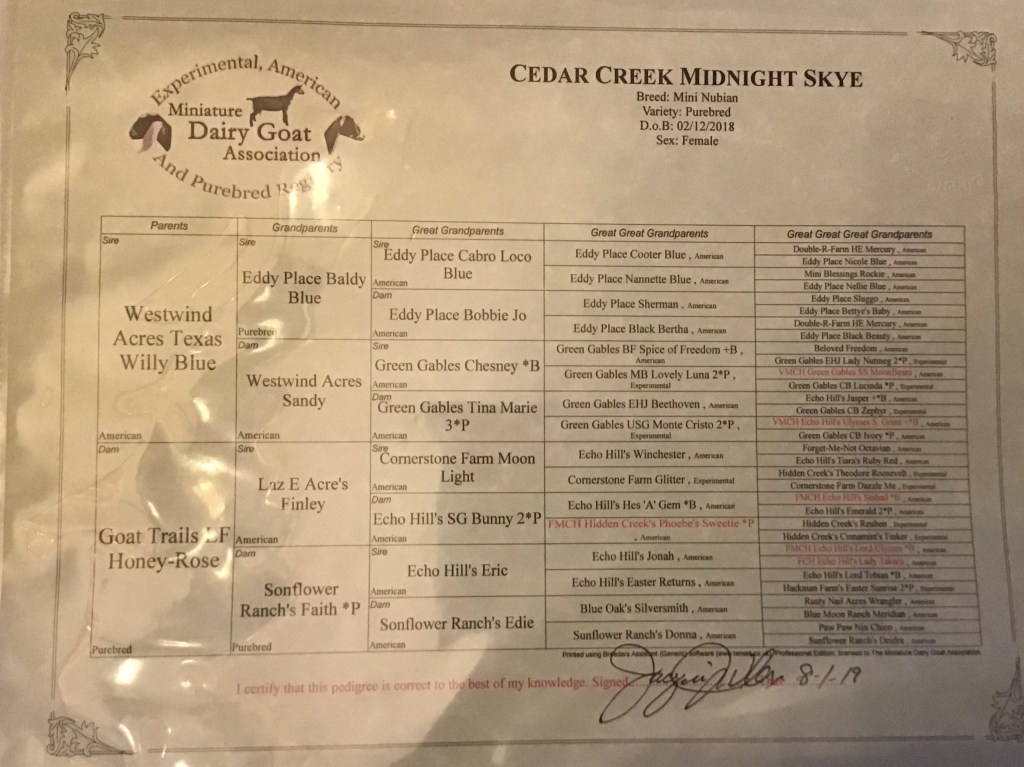 Experimental, American
Miniature
Dairy Goat
Association
And Purebred Registry
CEDAR CREEK MIDNIGHT SKYE
Breed: Mini Nubian
Variety: Purebred
D.o.B: 02/12/2018
Sex: Female
Parents
Grandparents
Great Grandparents
Great Great Grandparents
Great Great Great Grandparents
Sire
Westwind
Acres Texas
Willy Blue
American
Dam
Goat Trails LF
Honey-Rose
Purebred
Sire
Eddy Place Baldy
Blue
Purebred
Dam
Westwind Acres
Sandy
American
Sire
Laz E Acre's
Finley
American
Dam
Sonflower
Ranch's Faith *P
Purebred
Sire
Eddy Place Cabro Loco
Blue
American
Dam
Eddy Place Bobbie Jo
American
Sire
Green Gables Chesney *B
American
Dam
Green Gables Tina Marie
3*P
American
Sire
Cornerstone Farm Moon
Light
American
Dam
Echo Hill's SG Bunny 2*P
American
Sire
Echo Hill's Eric
American
Dam
Sonflower Ranch's Edie
American
Eddy Place Cooter Blue , American
Eddy Place Nannette Blue , American
Eddy Place Sherman , American
Eddy Place Black Bertha , American
Green Gables BF Spice of Freedom +B ,
American
Green Gables MB Lovely Luna 2*P ,
Experimental
Green Gables EHJ Beethoven , American
Green Gables USG Monte Cristo 2*P ,
Experimental
Echo Hill's Winchester , American
Cornerstone Farm Glitter , Experimental
Echo Hill's Hes 'A' Gem *B , American
FMCH Hidden Creek's Phoebe's Sweetie *P
, American
Echo Hill's Jonah , American
Echo Hill's Easter Returns , American
Blue Oak's Silversmith , American
Sunflower Ranch's Donna , American
Double-R-Farm HE Mercury , American
Eddy Place Nicole Blue , American
Mini Blessings Rockie , American
Eddy Place Nellie Blue , American
Eddy Place Sluggo , American
Eddy Place Bettye's Baby , American
Double-R-Farm HE Mercury , American
Eddy Place Black Beauty , American
Beloved Freedom , American
Green Gables EHJ Lady Nutmeg 2*P , Experimental
VMCH Green Gables SS Moonbeam , American
Green Gables CB Lucinda *P , Experimental
Echo Hill's Jasper +*B , American
Green Gables CB Zephyr , Experimental
VMCH Echo Hill's Ulysses S. Grant +*B , American
Green Gables CB Ivory *P , American
Forget-Me-Not Octavian , American
Echo Hill's Tiara's Ruby Red , American
Hidden Creek's Theodore Roosevelt , Experimental
Cornerstone Farm Dazzle Me , American
FMCH Echo Hill's Sinbad *B , American
Echo Hill's Emerald 2*P , American
Hidden Creek's Reuben , Experimental
Hidden Creek's Cinnamint's Tinker , American
FMCH Echo Hill's Lord Ulysses *B , American
FCH Echo Hill's Lady Takara , American
Echo Hill's Lord Tobias *B , American
Hackman Farm's Easter Sunrise 2*P , American
Rusty Nail Acres Wrangler , American
Blue Moon Ranch Meridian , American
Paw Paw Nix Chico , American
Sunflower Ranch's Deidra , American
Printed using Breeders Assistant (Generic) Software Professional Edition, licensed to The Miniature Dairy Goat Association
I certify that this pedigree is correct to the best of my knowledge. Signed 8-1-19